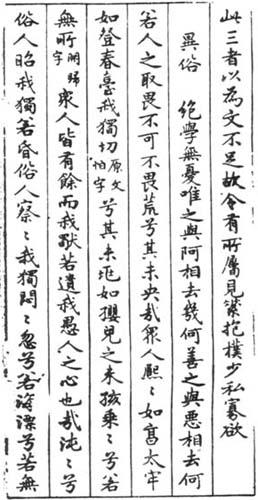 此三者以為文不足故令有所屬見素抱樸少私寡欲
異俗　絕學無憂唯之與阿相去幾何善之與惡相去何
若人之所畏不可不畏荒兮其未央哉眾人熙〻如享太牢
如登春臺我獨 原文怕字 兮其未兆如嬰兒之未孩乘〻兮若
無所 歸字 眾人皆有餘而我獨若遺我愚人之心也哉沌〻兮
俗人昭我獨若昏俗人察〻我獨悶〻忽兮若海漂兮若無